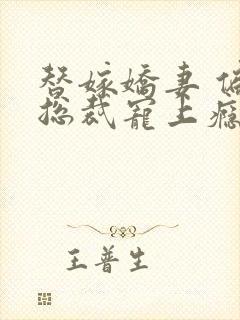 替嫁嬌妻
總裁寵上癮
王普生